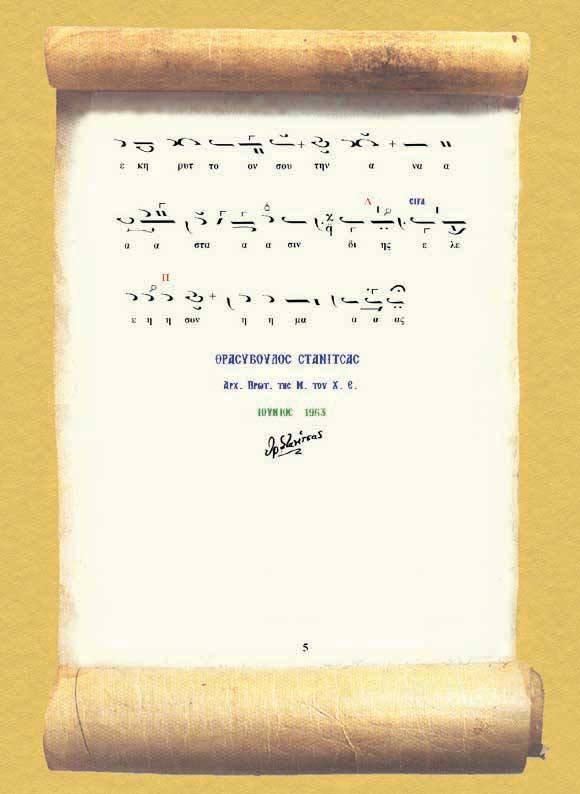 ε κη ρυτ το ον σου την α να α
Λ ειγα
α α στα α α σιν δι ης ε λε
Π
ε η η σον η η μα α α ας
ΘΡΑΣΥΒΟΥΛΟΣ ΣΤΑΝΙΤΣΑΣ
Αρχ. Πρωτ. της Μ. του Χ. Ε.
ΙΟΥΝΙΟΣ 1963
Θρ Στανίτσας
5